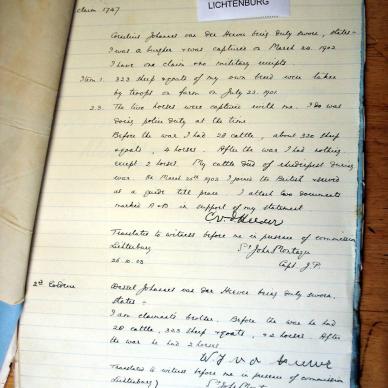 LICHTENBURG
claim 1747
Cornelius Johannes van der Heever being duly sworn, states -
I was a burgher & was captured on March 20. 1902
I have one claim & no military receipts.
Item 1. 323 sheep & goats of my own breed were taken
by troops on farm on July 23. 1901.
2.3. The two horses were captured with me. I was
doing police duty at the time
Before the war I had 28 cattle, about 320 sheep
& goats, 4 horses. After the war I had nothing
except 2 horses. My cattle died of rhinderpest during
war. On March 25th 1902 I joined the British & served
as a guide till peace. I attach two documents
marked A & B in support of my statement
Translated to witness before me in presence of commission
Lichtenburg St John Montagu
26.10.03 Capt. J.P.
2nd Evidence Johannes van der Heever being duly sworn,
states -
I am claimants brother. Before the war he had
20 cattle, 323 sheep & goats, & 2 horses. After
the war he had 2 horses
Translated to witness before me in presence of commission
Lichtenburg St John Montagu